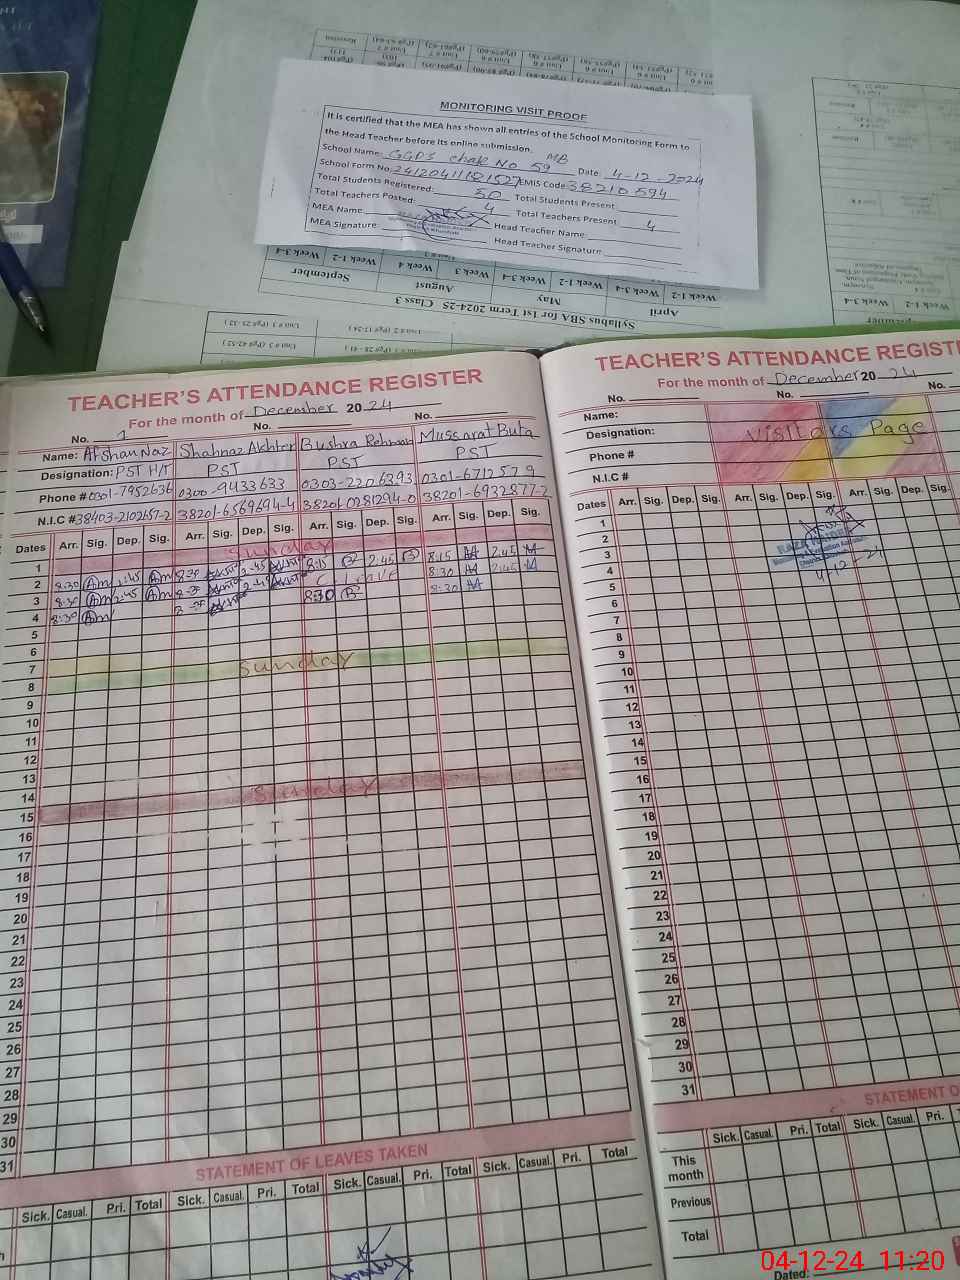 MONITORING VISIT PROOF
It is certified that the MEA has shown all entries of the School Monitoring Form to
the Head Teacher before its online submission.
School Name: GGPS chak No 59 MB Date: 4-12-2024
School Form No: EMIS Code: 38210594
Total Students Registered: 50 Total Students Present:
Total Teachers Posted: 4 Total Teachers Present: 4
MEA Name: Head Teacher Name:
MEA Signature: Head Teacher Signature:
Week 3-4 Week 1-2 Week 4 Week 3 Week 3-4 Week 1-2 Week 3-4 Week 1-2
September August May April
Syllabus SBA for 1st Term 2024-25 Class 3
TEACHER'S ATTENDANCE REGISTER
For the month of December 2024
No. 1 No. No.
Name: Afshan Naz Shahnaz Akhter Bushra Rehman Mussarat Buta
Designation: PST H/T PST PST PST
Phone # 0301-7952636 0300-9433633 0303-2206393 0301-6712579
N.I.C # 38403-2102657-2 38201-6569694-4 38201-0281294-0 38201-6932877-2
Dates Arr. Sig. Dep. Sig. Arr. Sig. Dep. Sig. Arr. Sig. Dep. Sig. Arr. Sig. Dep. Sig.
1 Sunday
2 8:30 Am 2:45 Am 8:30 2:45 8:15 B 2:45 B 8:15 2:45
3 8:30 Am 2:45 Am 8:30 2:45 C-leave 8:30 2:45
4 8:30 Am 8:30 8:30 B 8:30
5
6
7 Sunday
8
9
10
11
12
13
14 Sunday
15
16
17
18
19
20
21
22
23
24
25
26
27
28
29
30
31
STATEMENT OF LEAVES TAKEN
Sick. Casual. Pri. Total Sick. Casual. Pri. Total Sick. Casual. Pri. Total Sick. Casual. Pri. Total
TEACHER'S ATTENDANCE REGISTE
For the month of December 2024
No. No. No.
Name:
Designation: Visitors Page
Phone #
N.I.C #
Dates Arr. Sig. Dep. Sig. Arr. Sig. Dep. Sig. Arr. Sig. Dep. Sig.
1
2
3
4
5
6
7
8
9
10
11
12
13
14
15
16
17
18
19
20
21
22
23
24
25
26
27
28
29
30
31
STATEMENT O
Sick. Casual. Pri. Total Sick. Casual. Pri.
This month
Previous
Total
Dated:
04-12-24 11:20